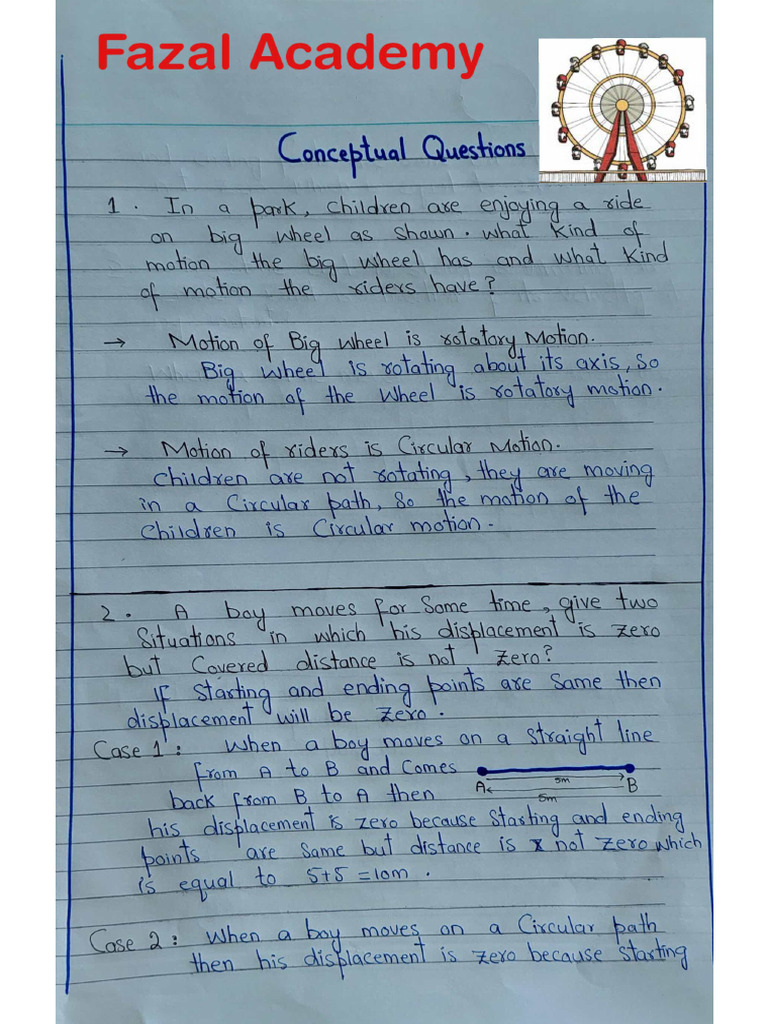 Fazal Academy
Conceptual Questions
1. In a park, children are enjoying a ride
on big wheel as shown. what kind of
motion the big wheel has and what kind
of motion the riders have?
→ Motion of Big wheel is rotatory Motion.
Big wheel is rotating about its axis, So
the motion of the wheel is rotatory motion.
→ Motion of riders is Circular Motion.
Children are not rotating, they are moving
in a Circular path, So the motion of the
Children is Circular motion.
2. A boy moves for Some time, give two
Situations in which his displacement is zero
but Covered distance is not zero?
If starting and ending points are same then
displacement will be zero.
Case 1: When a boy moves on a straight line
from A to B and Comes
back from B to A then
A 5m B
5m
his displacement is zero because starting and ending
points are same but distance is not zero which
is equal to 5+5=10m.
Case 2: When a boy moves on a Circular path
then his displacement is zero because starting